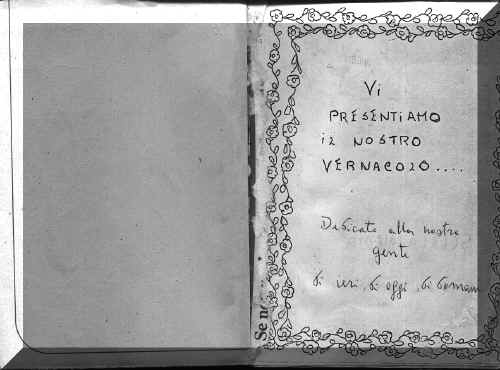 Vi
PRESENTIAMO
IL NOSTRO
VERNACOLO....
Dedicato alla nostra
gente
di ieri, di oggi, di domani
Se no